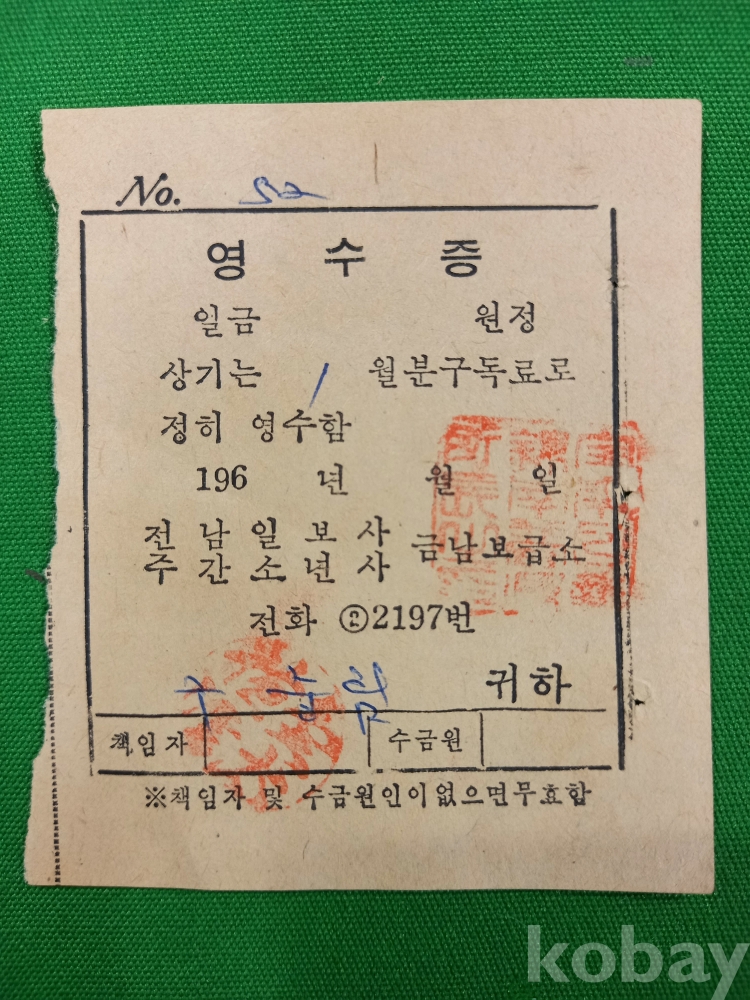 No. 52
영 수 증
일금 원정
상기는 / 월분구독료로
정히 영수함
196 년 월 일
전남일보사 금남보급소
주간소년사
전화 ②2197번
귀하
책임자 수금원
※책임자 및 수금원인이없으면무효함
kobay